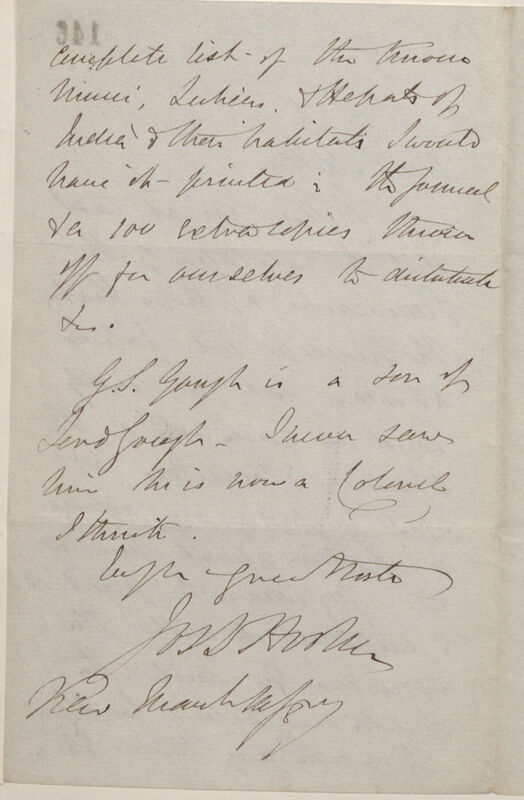 146
complete list of the known
Musci, Lichens, & Hepats of
India & their habitats I would
have it printed in the Journal
& a 100 extra copies thrown
off for ourselves to distribute
&c.
G.S. Gough is a son of
Lord Gough – I never saw
him he is now a Colonel
I think.
In great haste
Jos D Hooker
Kew March